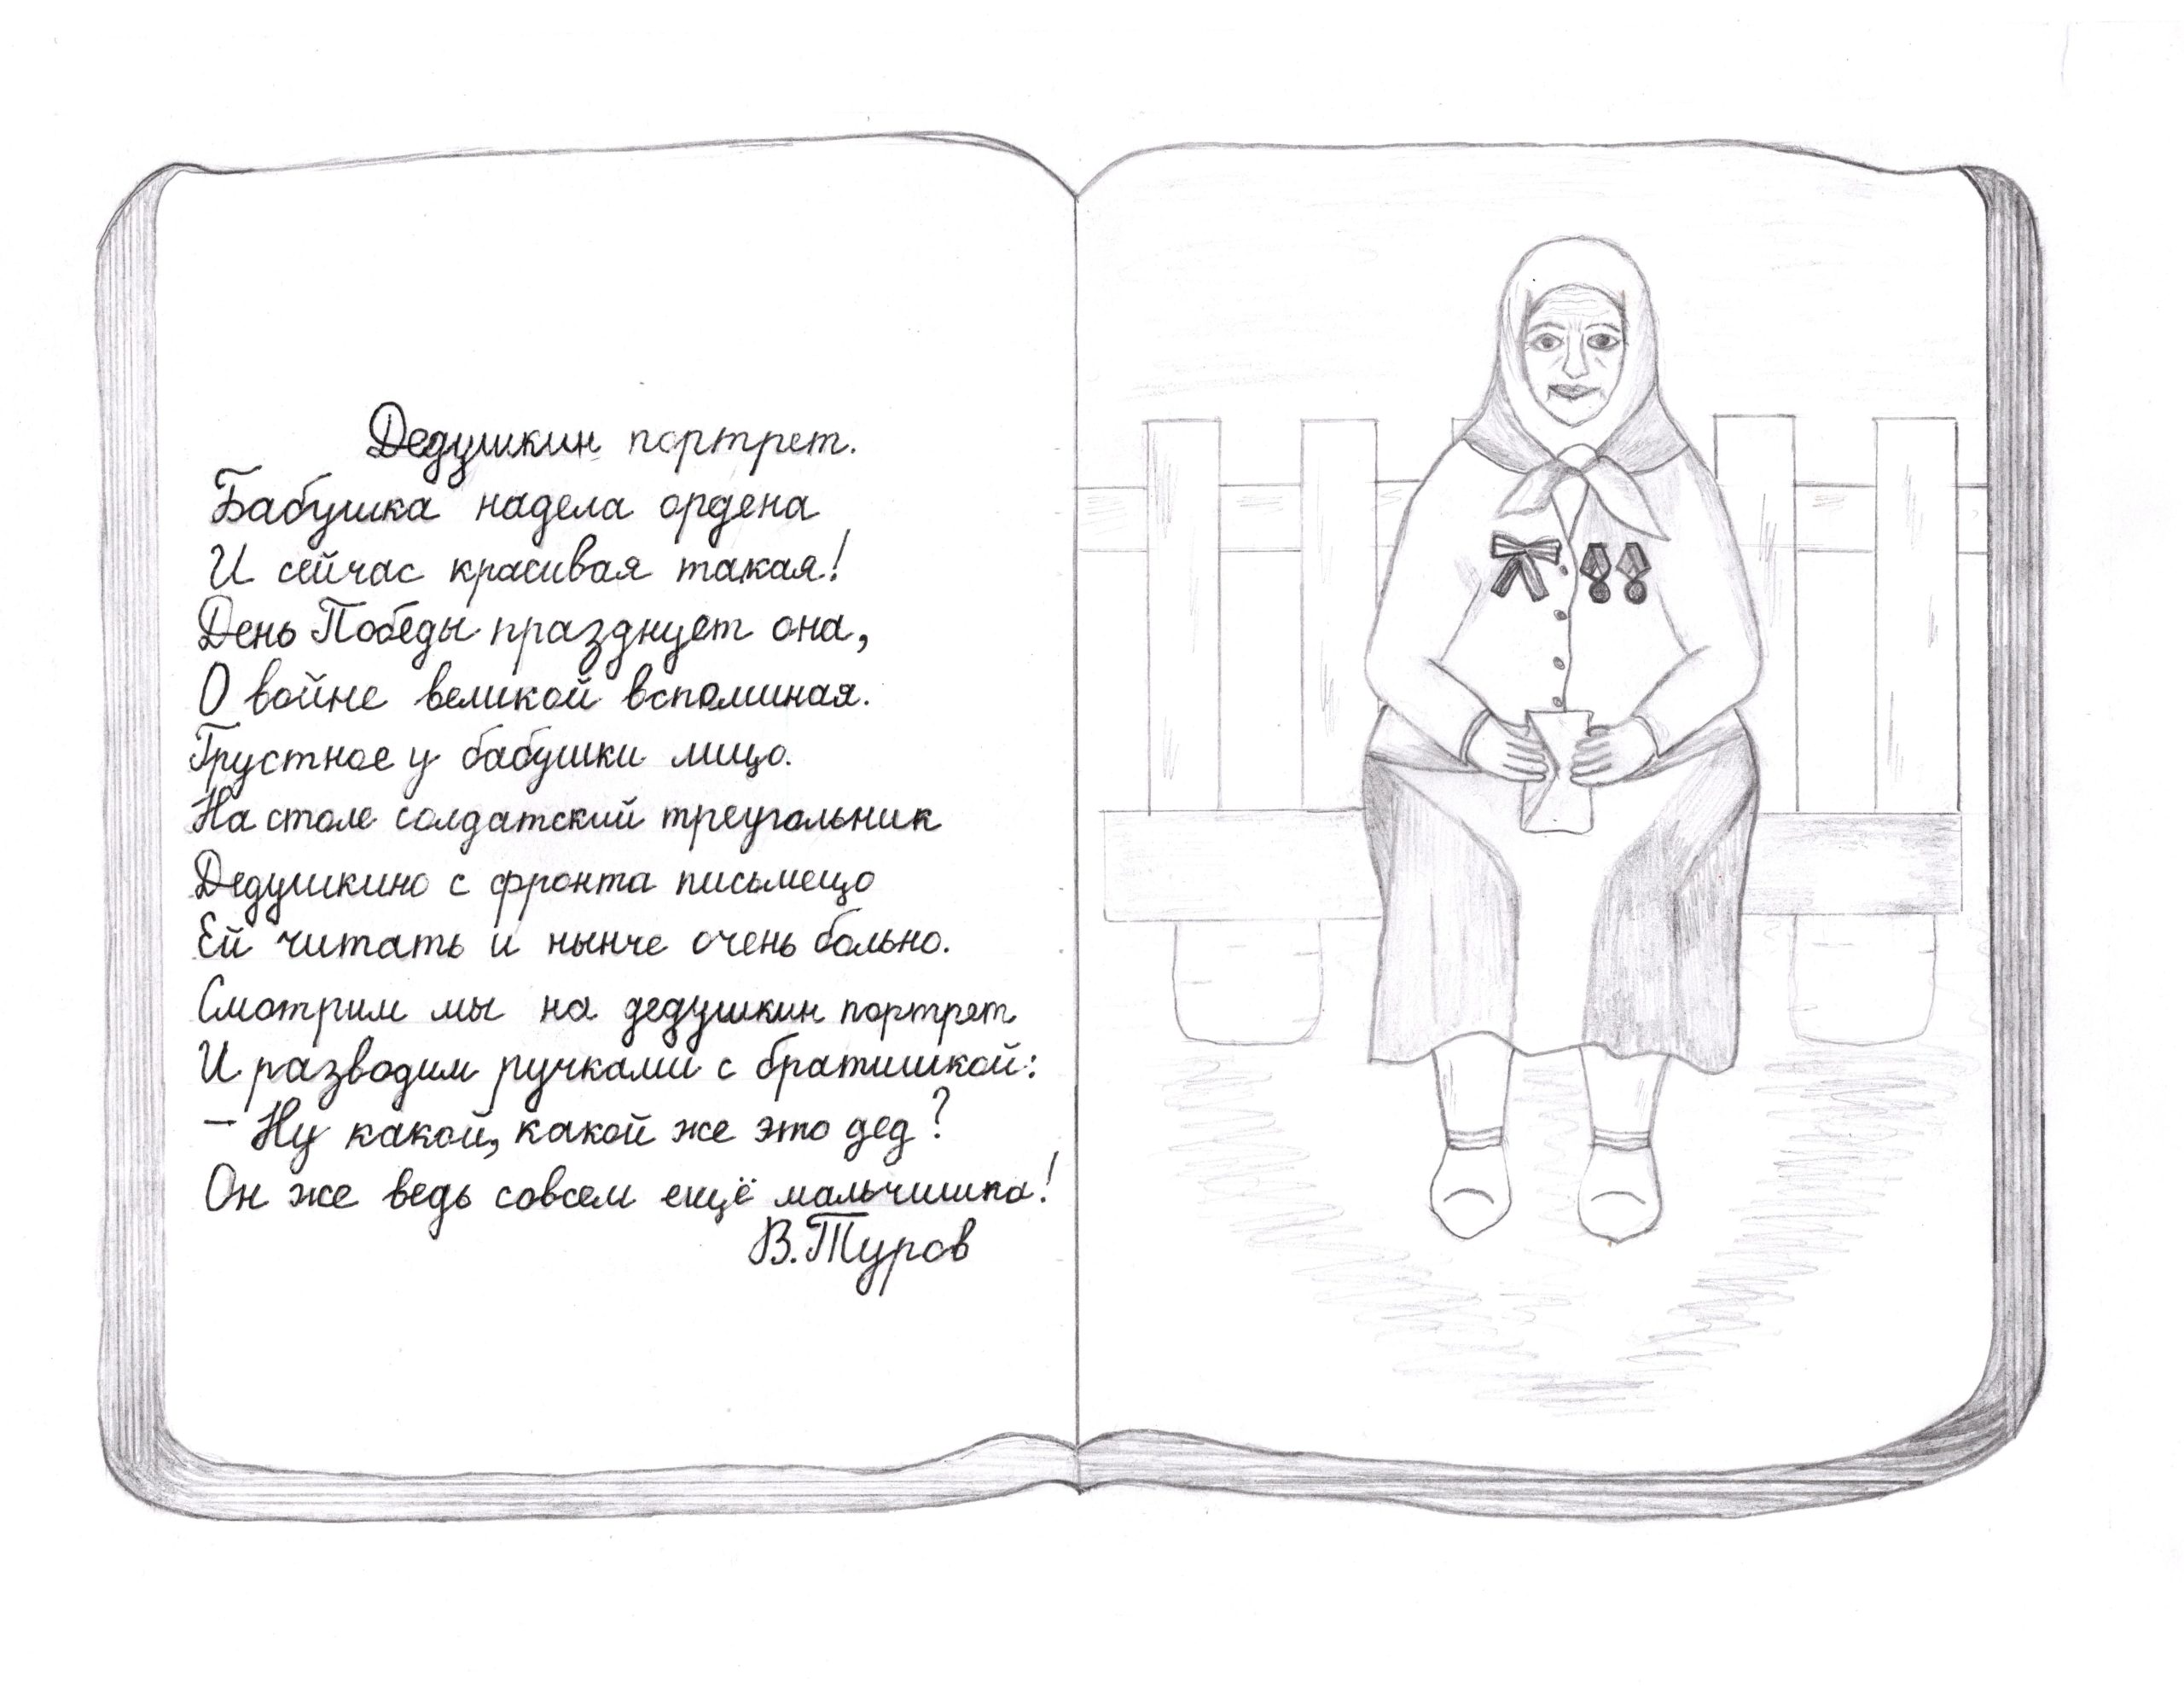 Дедушкин портрет.
Бабушка надела ордена
И сейчас красивая такая!
День Победы празднует она,
О войне великой вспоминая.
Грустное у бабушки лицо.
На столе солдатский треугольник
Дедушкино с фронта письмецо
Ей читать и нынче очень больно.
Смотрим мы на дедушкин портрет
И разводим ручками с братишкой:
- Ну какой, какой же это дед?
Он же ведь совсем ещё мальчишка!
В.Туров